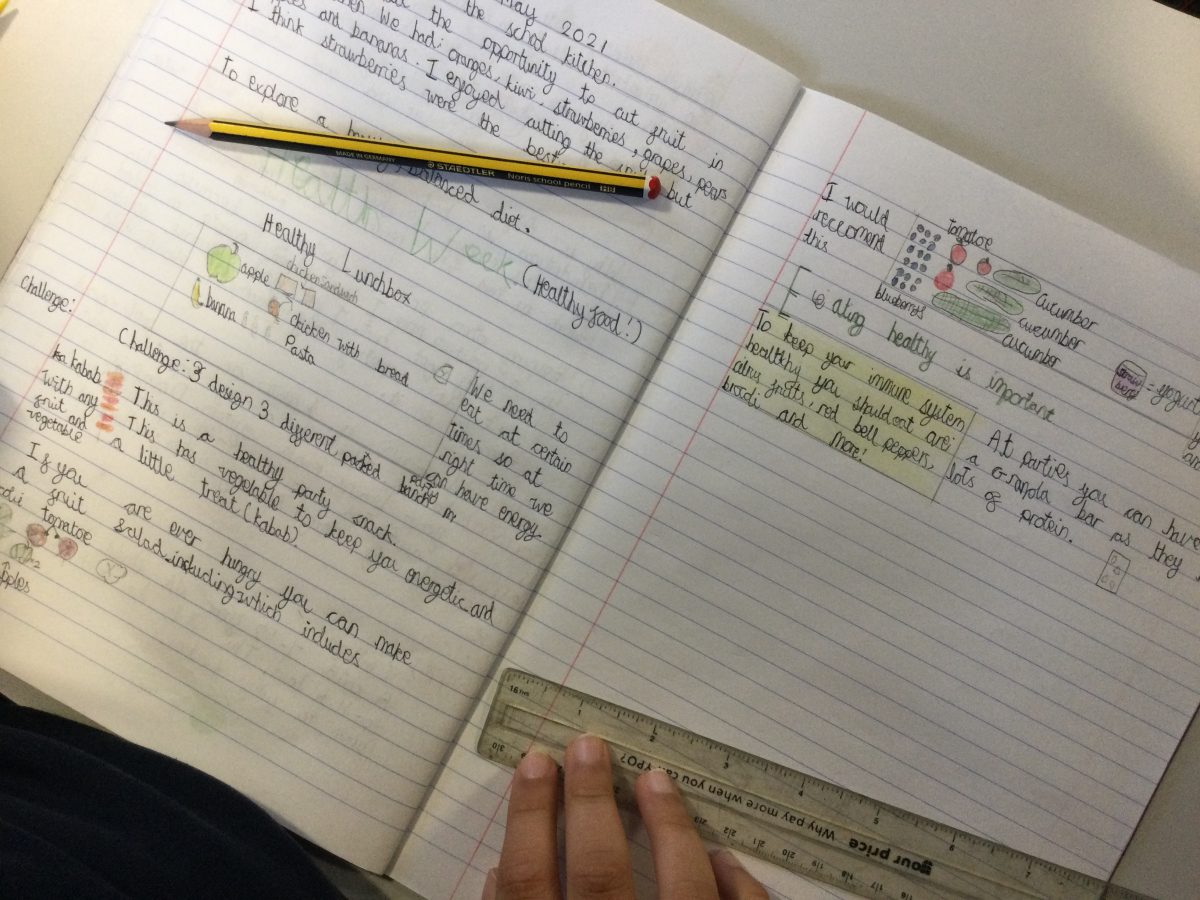 May 2021
the opportunity to cut fruit in
the school kitchen.
when we had: oranges, kiwi, strawberries, grapes, pears
and bananas. I enjoyed cutting the but
I think strawberries were the best
To explore a balanced diet.
MADE IN GERMANY
STAEDTLER
Noris school pencil
HB
Health Week (Healthy food!)
Healthy Lunchbox
apple
chicken sandwich
banana
chicken with bread
Pasta
We need to
eat at certain
times so at
right time we
can have energy
Challenge:
Challenge: 3 design 3 different packed
kabab
with any
fruit and
vegetable
This is a healthy party snack.
This has vegetable to keep you energetic and
a little treat (kabab).
If you are ever hungry you can make
a fruit salad including which includes
tomatoe
apples
I would
reccomend
this
tomatoe
blueberrys
cucumber
cucumber
cucumber
= yogurt
Eating healthy is important
To keep your immune system
healthy you should eat are:
citrus fruits, red bell peppers,
brocoli and more!
At parties you can have
a Granola bar as they
lots of protein.
your price
Why pay more when you can YPO?